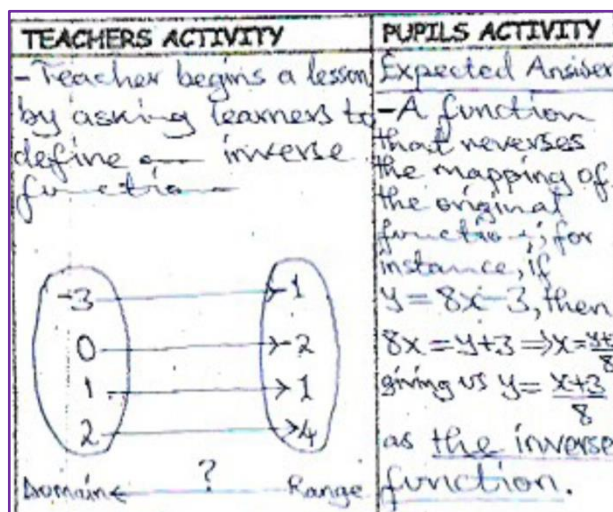 TEACHERS ACTIVITY
-Teacher begins a lesson
by asking learners to
define an inverse
function
-3 → -1
0 → -2
1 → 1
2 → 4
?
Domain ← Range
PUPILS ACTIVITY
Expected Answer
-A function
that reverses
the mapping of
the original
function; for
instance, if
y = 8x-3, then
8x = y+3 ⇒ x = y+/8
giving us y = x+3/8
as the inverse
function.